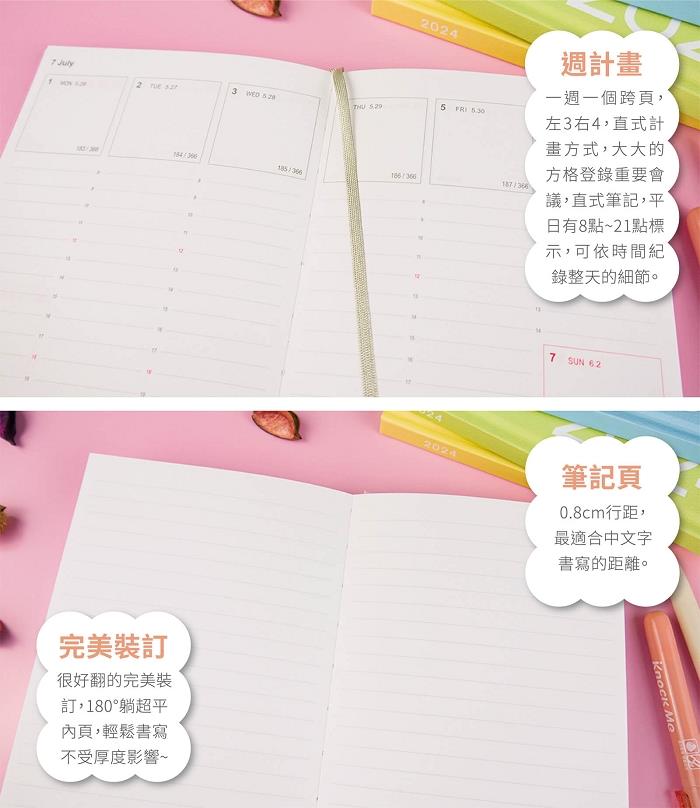 2024
202
週計畫
一週一個跨頁，
左3右4，直式計
畫方式，大大的
方格登錄重要會
議，直式筆記，平
日有8點~21點標
示，可依時間紀
錄整天的細節。
7 July
1 MON 5.26
2 TUE 5.27
3 WED 5.28
THU 5.29
5 FRI 5.30
183 / 366
184 / 366
185 / 366
186 / 366
187 / 366
7 SUN 6.2
2024
2024
筆記頁
0.8cm行距，
最適合中文字
書寫的距離。
完美裝訂
很好翻的完美裝
訂，180°躺超平
內頁，輕鬆書寫
不受厚度影響~
Knock Me